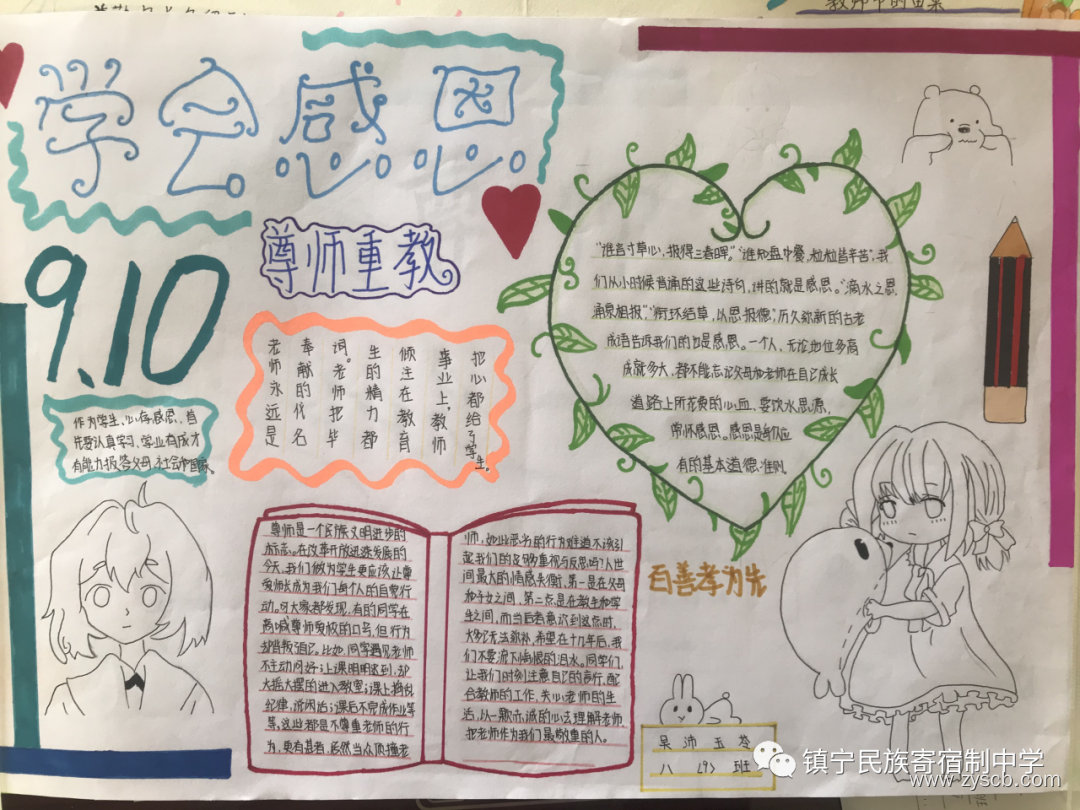 学会感恩
尊师重教
9.10
作为学生、心存感恩、首
先要认真学习,学业有成才
有能力报答父母、社会和国家。
把心都给了学生。
事业上,教师
倾注在教育
生的精力都
词。老师把毕
奉献的代名
老师永远是
"谁言寸草心,报得三春晖。""谁知盘中餐,粒粒皆辛苦",我
们从小时候背诵的这些诗句,讲的就是感恩。"滴水之恩
涌泉相报""衔环结草,以恩报德",历久弥新的古老
成语告诉我们的也是感恩。一个人,无论地位多高
成就多大,都不能忘记父母和老师在自己成长
道路上所花费的心血、要饮水思源,
常怀感恩。感恩是
有的基本道德准则。
尊师是一个民族文明进步的
标志。在改革开放迅速发展的
今天,我们做为学生更应该让尊
爱师长成为我们每个人的自觉行
动。可大家都发现,有的同学在
高喊尊师爱校的口号,但行为
却背叛了自己。比如,同学遇见老师
不主动问好;上课明明迟到,却
大摇大摆的进入教室;课上扰
纪律,说闲话;课后不完成作业等
等,这些都是不尊重老师的行
为,更有甚者,居然当众顶撞老
师,如此恶劣的行为难道不该引
起我们的足够重视与反思吗?人世
间最大的情感失衡,第一是在父母
和子女之间,第二点是在教生和学
生之间,而当后者意识到这点时,
大多已无法弥补,希望在十几年后,我
们不要流下悔恨的泪水。同学们,
让我们时刻注意自己的言行,配
合教师的工作、关心老师的生
活,以一颗赤诚的心去理解老师,
把老师作为我们最敬重的人。
百善孝为先
吴沛玉
八〈9〉班
镇宁民族寄宿制中学
www.zyscb.com